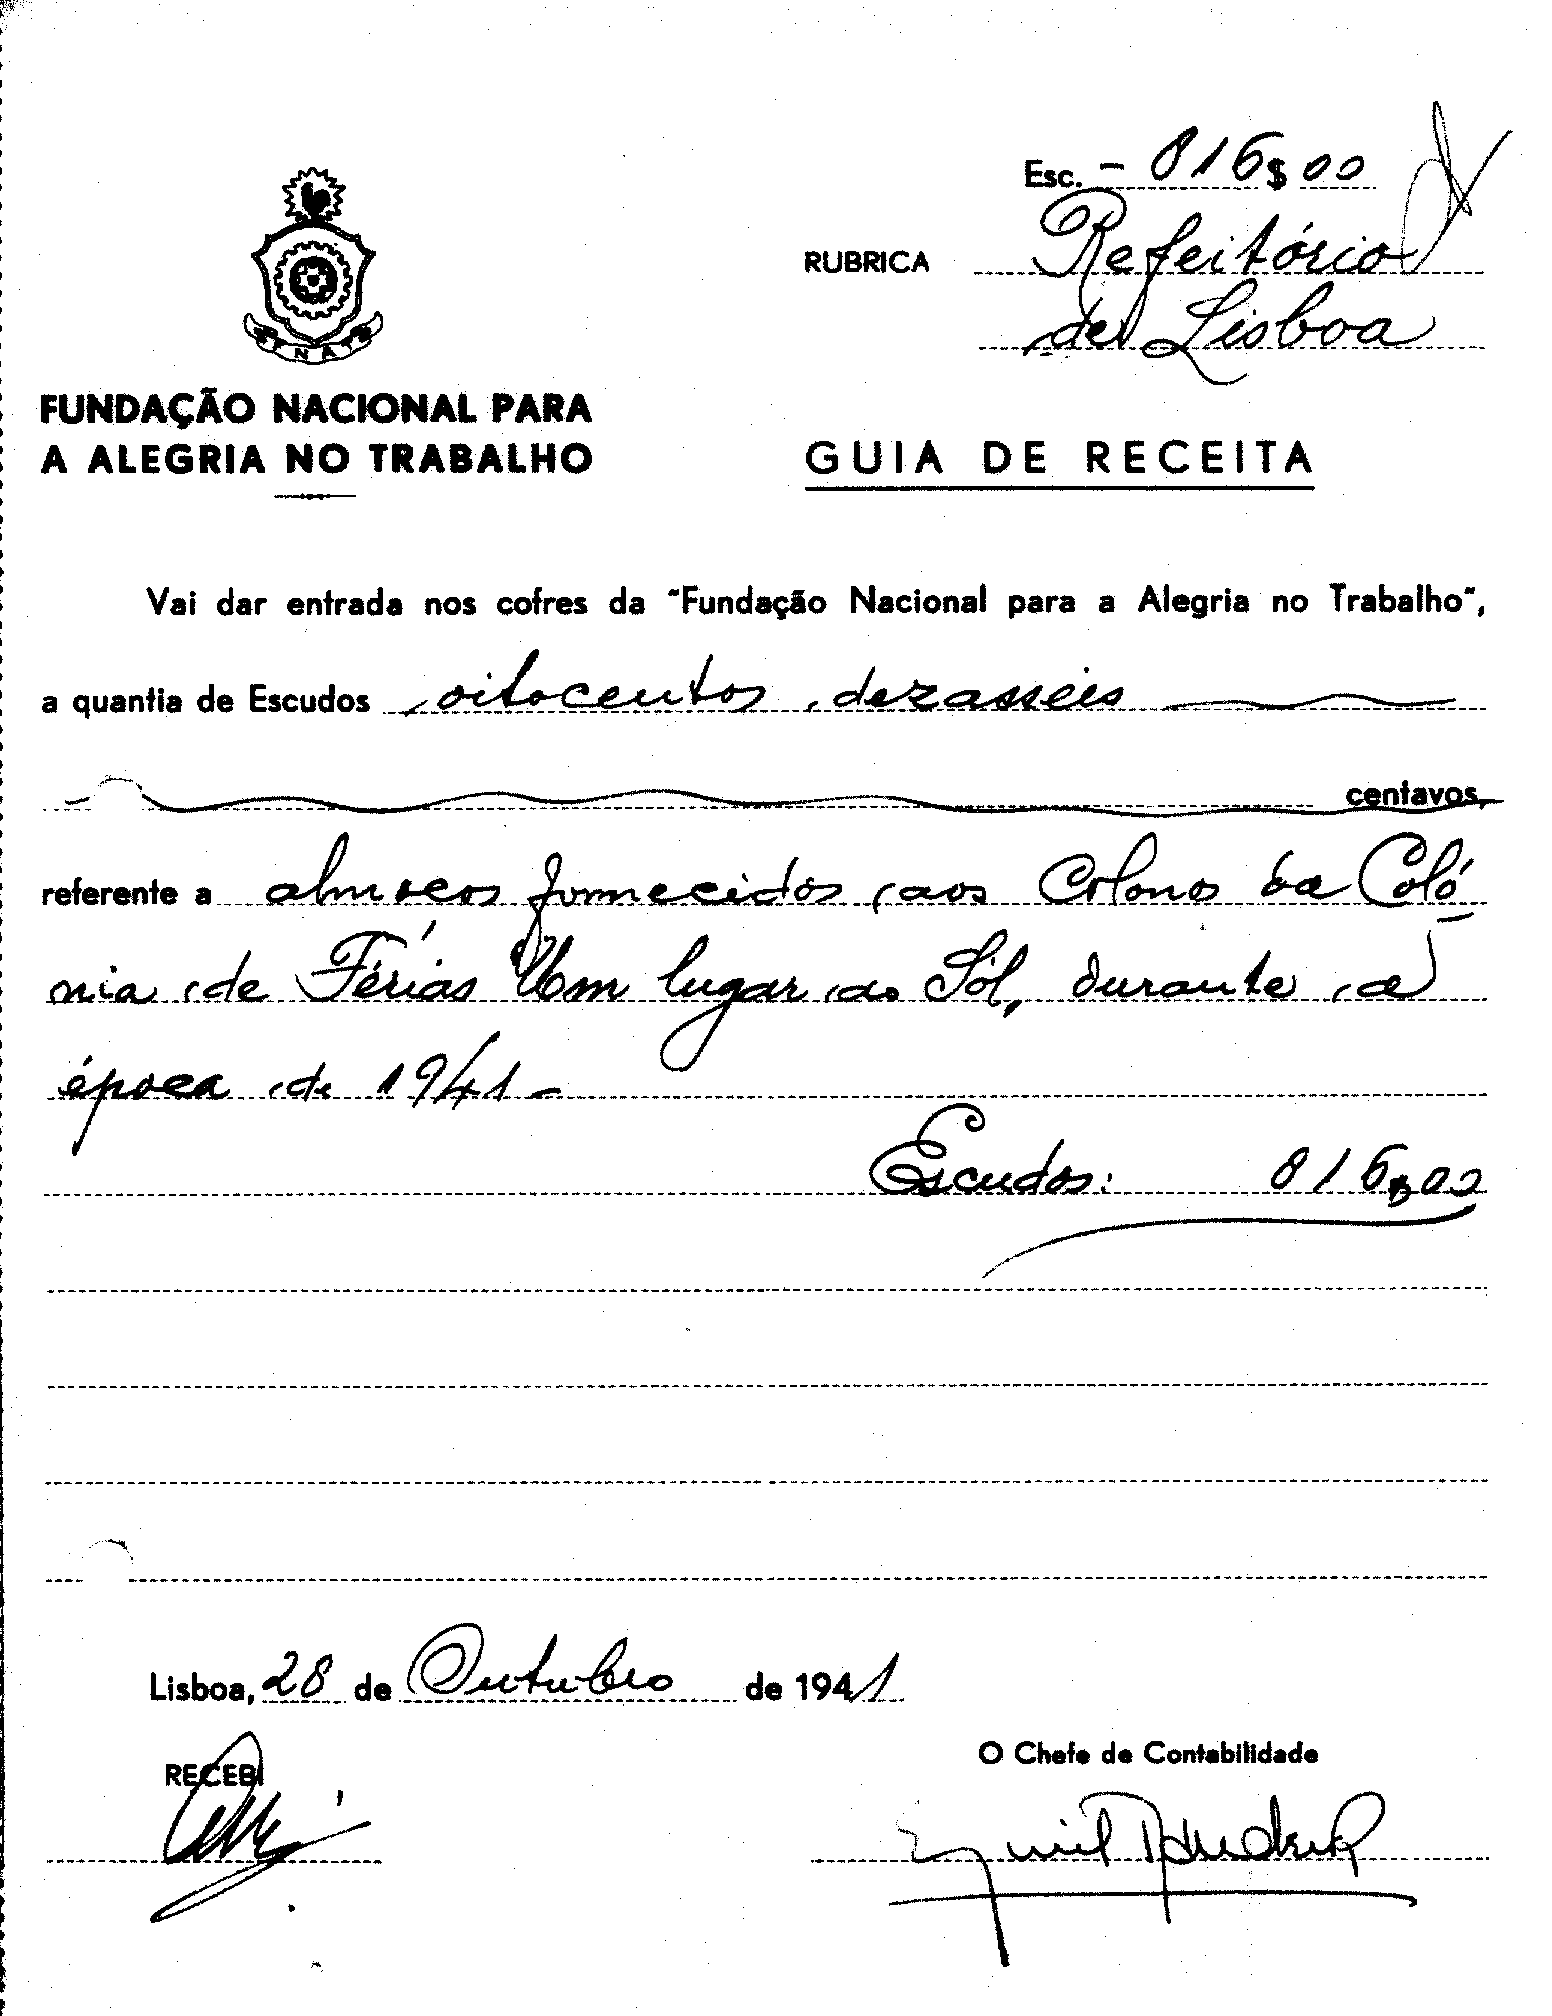 Esc. - 816$00
RUBRICA Refeitório
de Lisboa
FNAT
FUNDAÇÃO NACIONAL PARA
A ALEGRIA NO TRABALHO
GUIA DE RECEITA
Vai dar entrada nos cofres da "Fundação Nacional para a Alegria no Trabalho",
a quantia de Escudos oitocentos dezasseis
centavos,
referente a almoços fornecidos aos Colonos da Coló
nia de Férias Um lugar ao Sól, durante a
época de 1941-
Escudos: 816$00
Lisboa, 28 de Outubro de 1941
RECEBI
O Chefe de Contabilidade